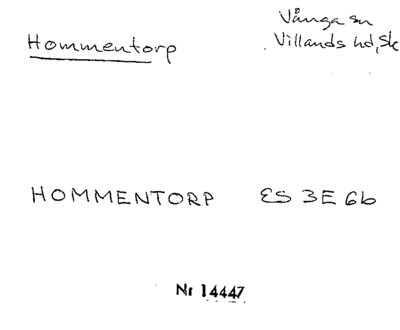 Hommentorp
Vånga sn
Villands hd, Sk
HOMMENTORP ES 3E 6b
Nr 14447